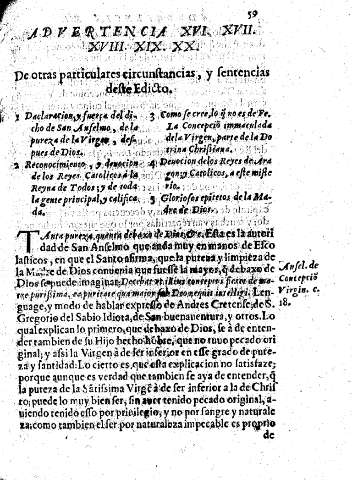 59
ADVERTENCIA XVI. XVII.
XVIII. XIX. XX.
De otras particulares circunstancias, y sentencias
deste Edicto.
1 Declaracion, y fuerça del di-
cho de San Anselmo, de la
pureza de la Virgen, des-
pues de Dios.
2 Reconocimiento, y devocion
de los Reyes Catolicos à la
Reyna de Todos; y de toda
la gente principal, y califica
da.
3 Como se cree, lo q̃ no es de Fe.
La Concepciõ immaculada
de la Virgen, parte de la Do
trina Christiana.
4 Devocion de los Reyes de Ara
gon, y Catolicos, a este miste
rio.
5 Gloriosos epitetos de la Ma
dre de Dios.
TAnta pureza, quanta debaxo de Dios, &c. Esta es la autori
dad de San Anselmo que anda muy en manos de Esco
lasticos, en que el Santo afirma, que la pureza y limpieza de
la Madre de Dios convenia que fuesse la mayor, q̃ debaxo de
Dios se puede imaginar. Decebat illius conceptio fieret de ma-
tre purissima, ea puritate qua maior sub Deo nequit intelligi. Len-
guage, y modo de hablar expresso de Andres Cretense, de S.
Gregorio del Sabio Idiota, de San buenaventura, y otros. Lo
qual explican lo primero, que debaxo de Dios, se à de enten-
der tambien de su Hijo hecho hõbre, que no tuuo pecado ori
ginal; y assi la Virgen à de ser inferior en esse grado de pure-
za y santidad: Lo cierto es, que esta explicacion no satisfaze;
porque aunque es verdad que tambien se aya de entender, q̃
la pureza de la Sãtissima Virgẽ à de ser inferior a la de Chris
to; puede lo muy bien ser, sin auer tenido pecado original, a-
uiendo tenido esso por privilegio; y no por sangre y naturale
za: como tambien el ser por naturaleza impecable es proprio
de
Ansel. de
Concepciõ
Virgin. c.
18.